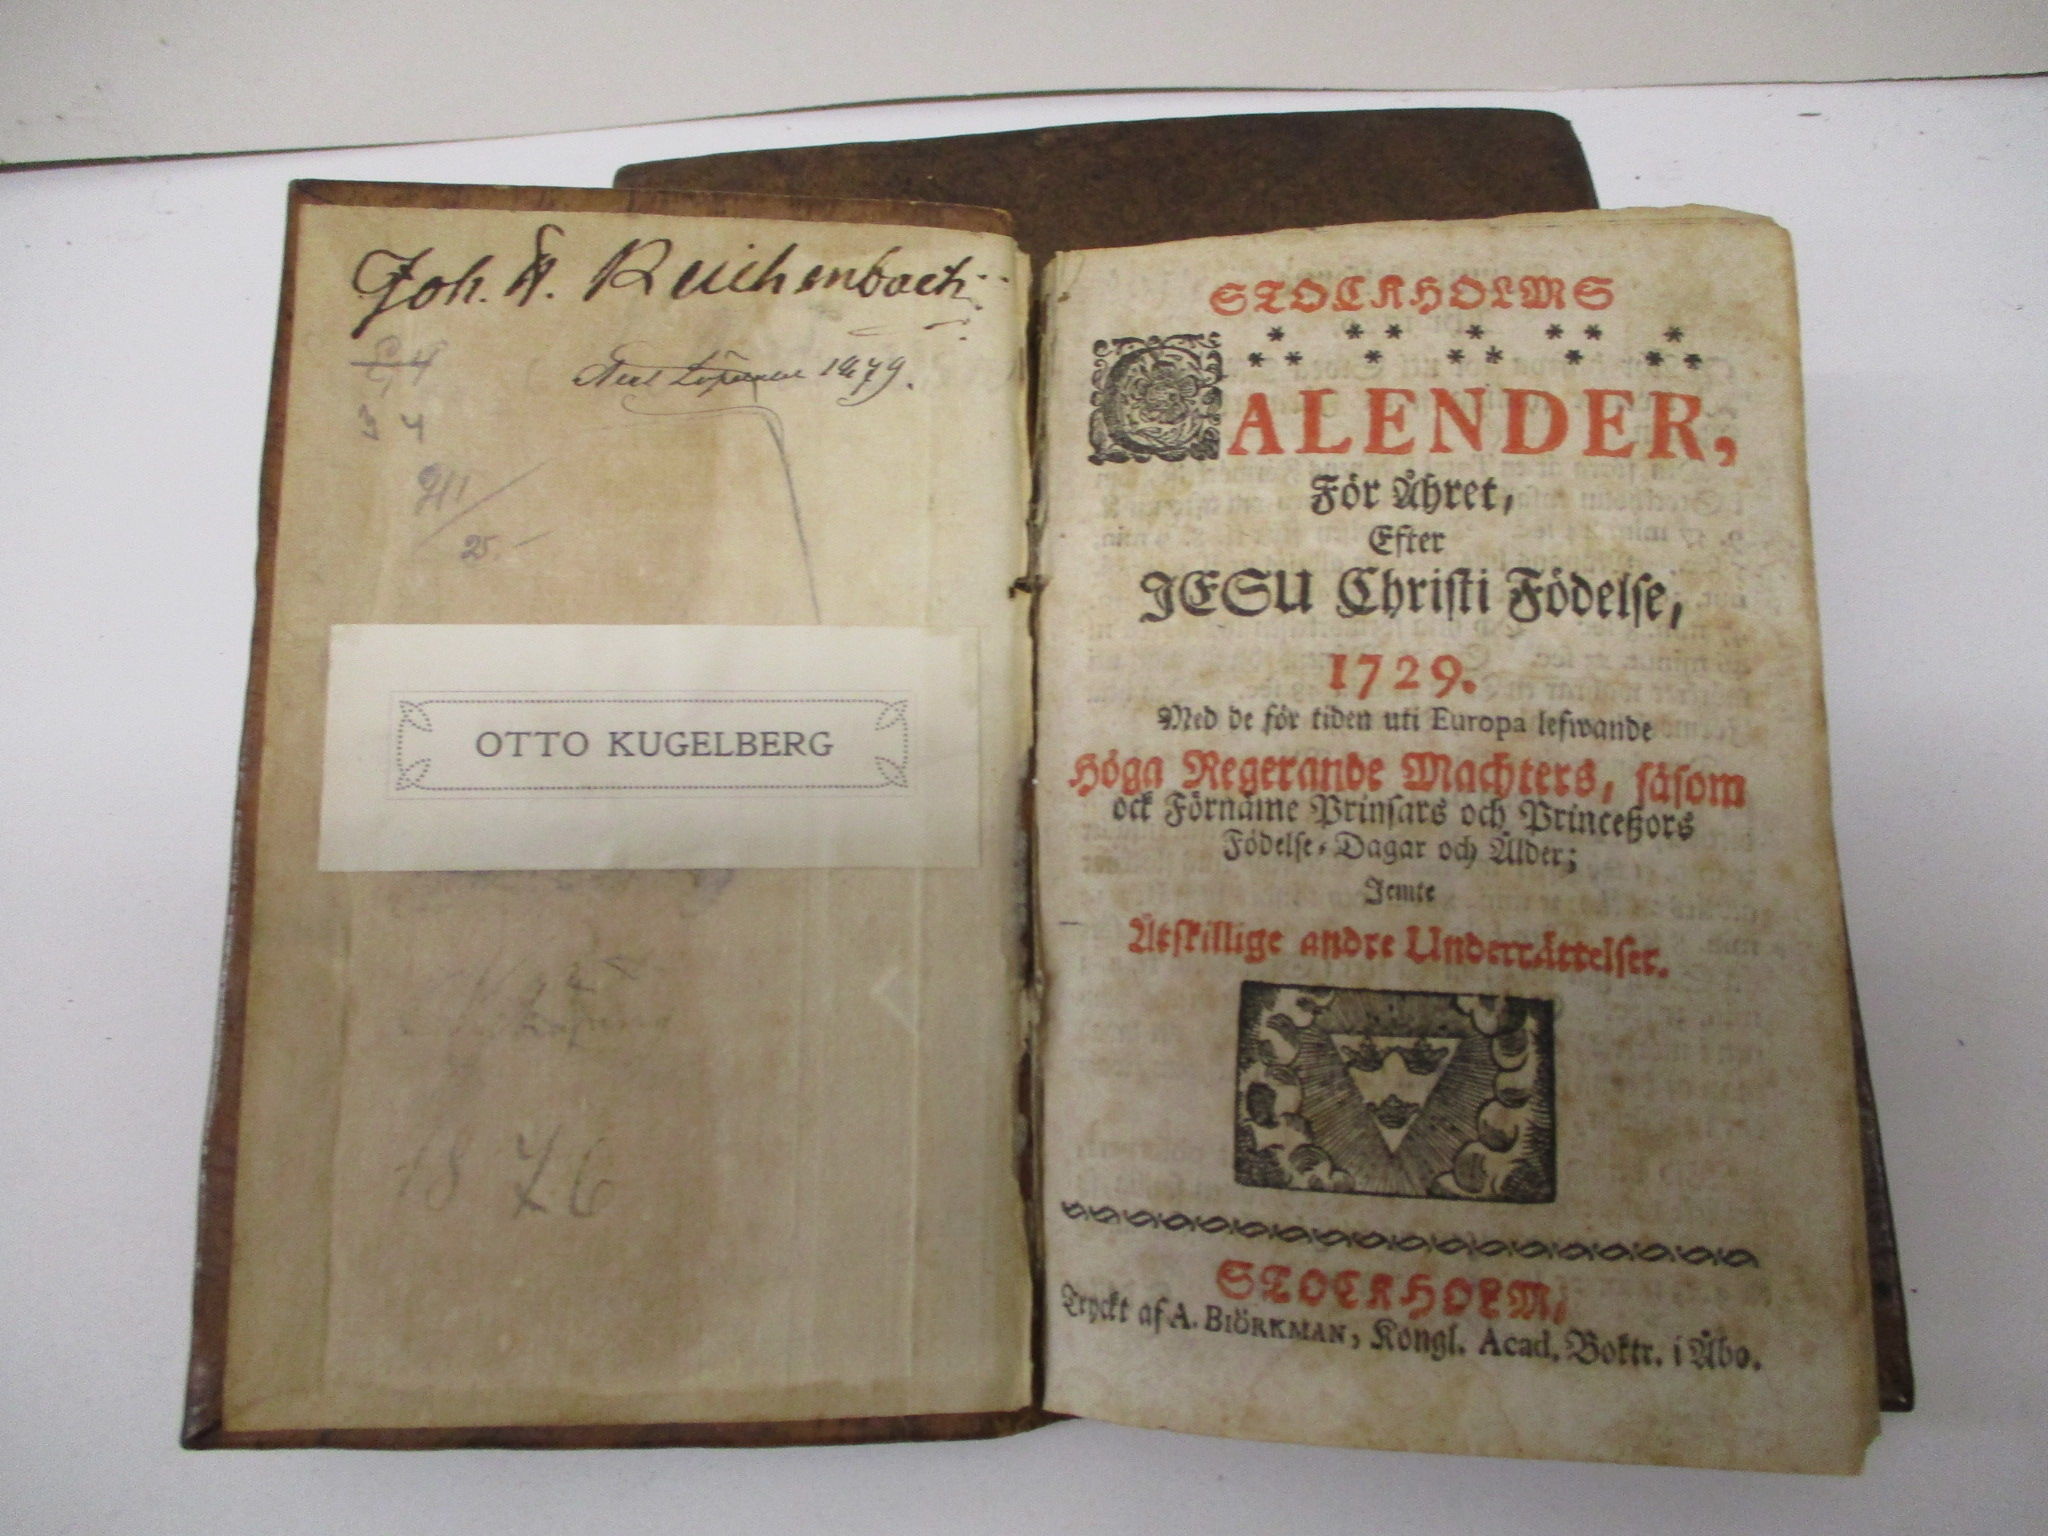 Joh. A. Reichenbach
1879.
3 4
211
25.
OTTO KUGELBERG
1876
STOCKHOLMS
CALENDER,
För Åhret,
Efter
JESU Christi Födelse,
1729.
Med de för tiden uti Europa lefwande
Höga Regerande Machters, såsom
ock Förnäme Prinsars och Princeßors
Födelse-Dagar och Ålder;
Jemte
Åtskillige andre Underrättelser.
STOCKHOLM,
Tryckt af A. BIÖRKMAN, Kongl. Acad. Boktr. i Åbo.